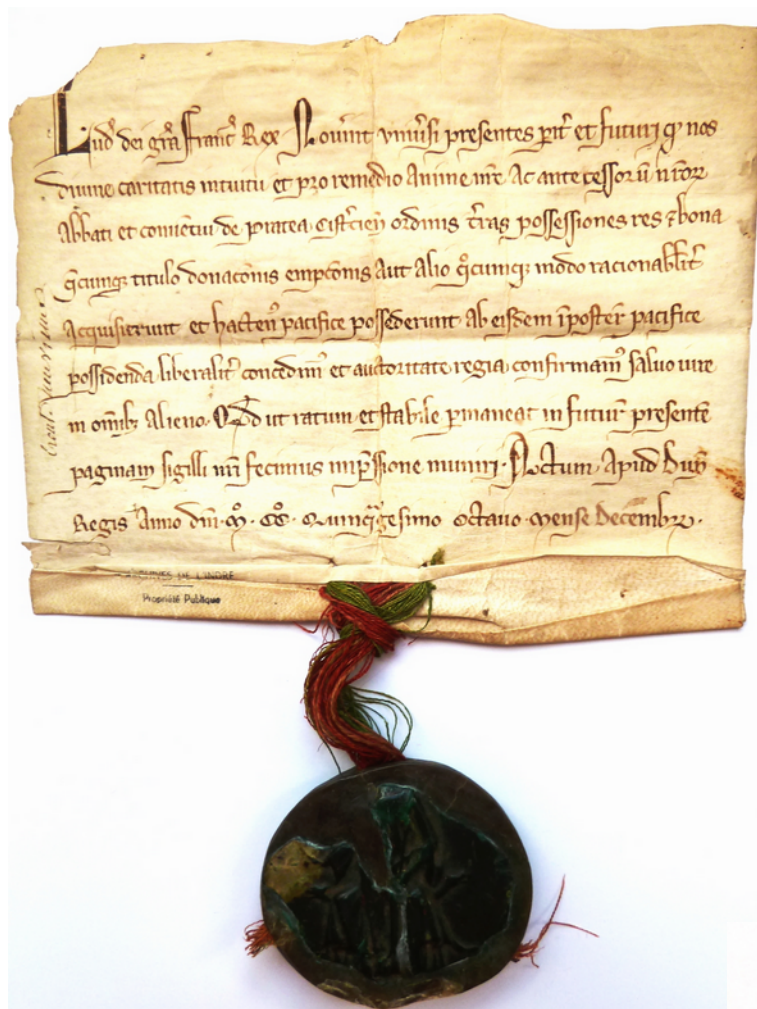 Ludo dei gra Franc Rex Noverint universi presentes parit et futuri q nos
divine caritatis intuitu et pro remedio Anime nre Ac ante cessoru nror
Abbati et conventui de pratea Cisterciens ordinis tras possessiones res et bona
qcumq titulo donaconis empconis Aut Alio qcumq modo racionabilit
Acquisierunt et hacten pacifice possederunt Ab eisdem iposter pacifice
possidenda liberalit concedim et auctoritate regia confirmam salvo iure
in omib Alieno. Qd ut ratum et stabile pmaneat in futur presente
paginam sigilli nri fecimus impssione muniri. Actum Apud
Regis Anno dni. M. CC. Quinqgesimo Octavo mense Decembr.
ARCHIVES DE L'INDRE
Propriété Publique